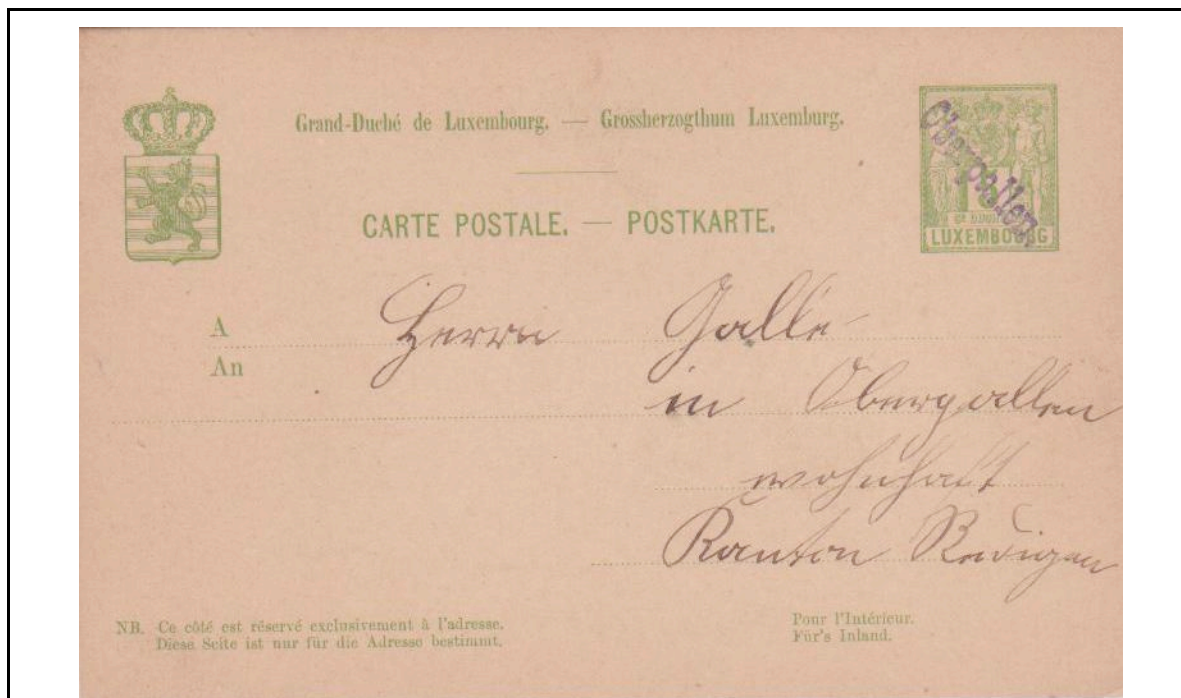 Grand-Duché de Luxembourg. — Grossherzogthum Luxemburg.
Oberpallen
LUXEMBOURG
CARTE POSTALE. — POSTKARTE.
A
An
Herrn Galle
in Oberpallen
wohnhaft
Kanton Redigen
NB. Ce côté est réservé exclusivement à l'adresse.
Diese Seite ist nur für die Adresse bestimmt.
Pour l'Intérieur.
Für's Inland.